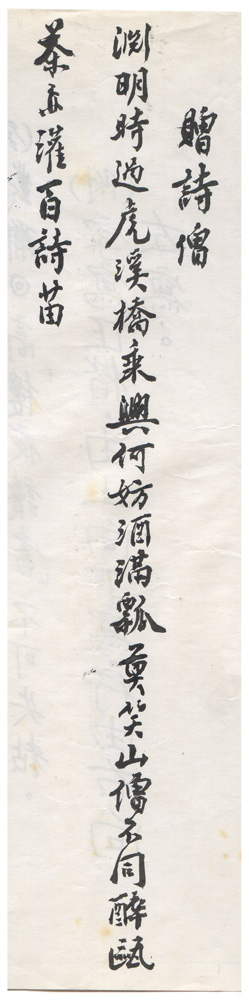 贈詩僧
淵明時過虎溪橋乘興何妨酒滿瓢莫笑山僧不同醉甌
茶亦灌百詩苗